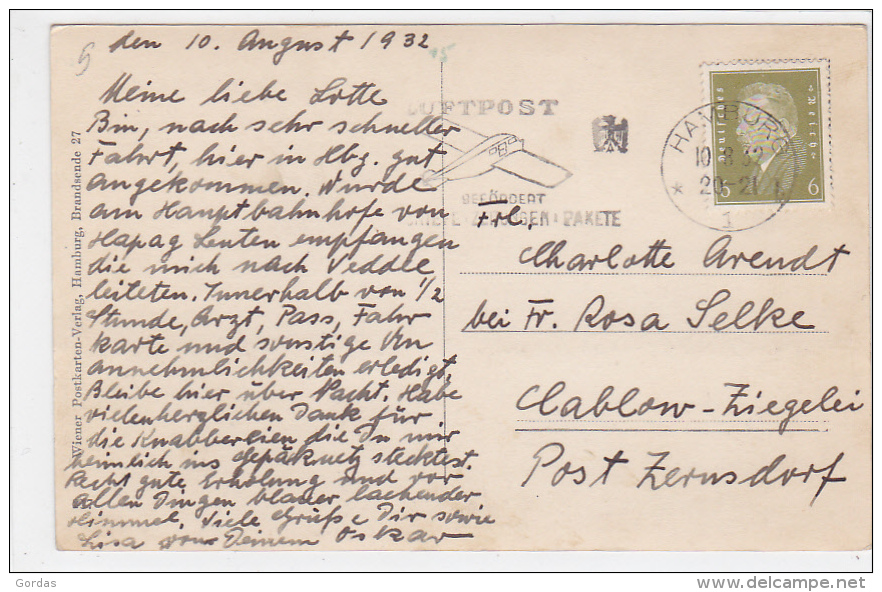 den 10. August 1932
Meine liebe Lotte
Bin, nach sehr schneller
Fahrt, hier in Hbg. gut
angekommen. Wurde
am Hauptbahnhofe von
Hapag Leuten empfangen
die mich nach Veddel
leiteten. Innerhalb von 1/2
Stunde, Arzt, Pass, Fahr
karte und sonstige Un
annehmlichkeiten erledigt,
Bleibe hier über Nacht. Habe
vielen herzlichen Dank für
die Knabbereien die Du mir
heimlich ins Gepäknetz stecktest.
Recht gute Erholung und vor
allen Dingen blauer lachender
Himmel. Viele Grüße Dir sowie
Lisa von Deinem Oskar
Wiener Postkarten-Verlag, Hamburg, Brandsende 27
LUFTPOST
BEFÖRDERT
BRIEFE · ZEITUNGEN · PAKETE
HAMBURG
10.8.32
20-21
1
Deutsches Reich
6 6
Frl.
Charlotte Arendt
bei Fr. Rosa Selke
Cablow-Ziegelei
Post Zernsdorf
Gordas
delcampe.net